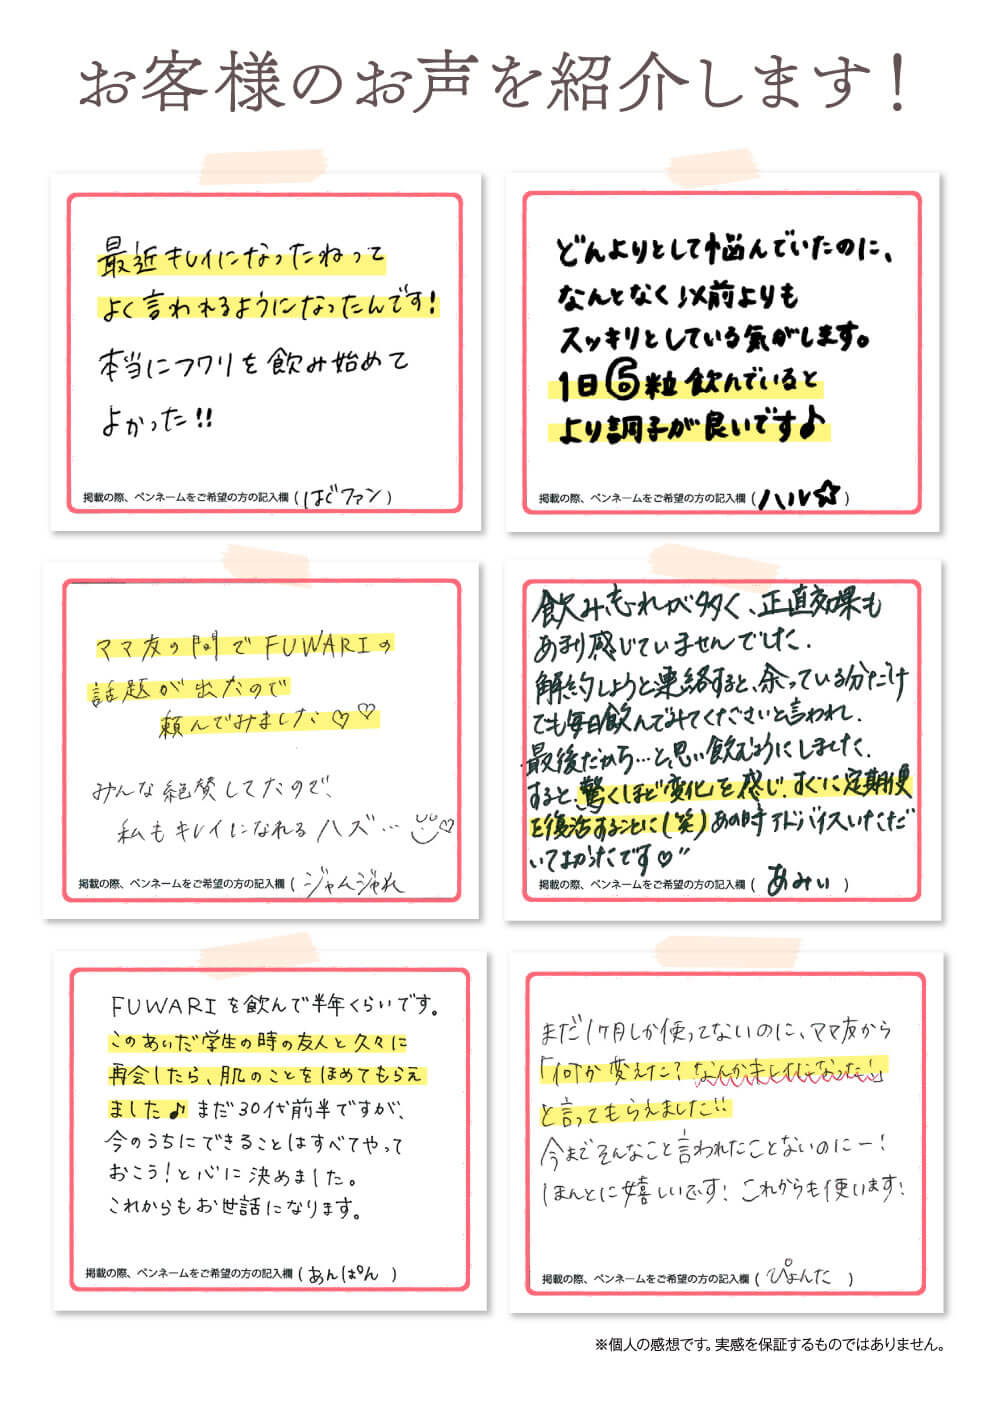 お客様のお声を紹介します！
最近キレイになったねって
よく言われるようになったんです!
本当にフワリを飲み始めて
よかった!!
掲載の際、ペンネームをご希望の方の記入欄 (はぐファン)
どんよりとして悩んでいたのに、
なんとなく以前よりも
スッキリとしている気がします。
1日⑥粒飲んでいると
より調子が良いです♪
掲載の際、ペンネームをご希望の方の記入欄 (ハル☆)
ママ友の間でFUWARIの
話題が出たので
頼んでみました♡♡
みんな絶賛してたので、
私もキレイになれるハズ…♡
掲載の際、ペンネームをご希望の方の記入欄 (ジャムジャれ
飲み忘れが多く、正直効果も
あまり感じていませんでした.
解約しようと連絡すると、余っている分だけ
でも毎日飲んでみてくださいと言われ.
最後だから…と思い飲むようにしました.
すると、驚くほど変化を感じ.すぐに定期便
を復活することに(笑)あの時アドバイスいただ
いてよかったです♡"
掲載の際、ペンネームをご希望の方の記入欄 (あみぃ)
FUWARIを飲んで半年くらいです。
このあいだ学生の時の友人と久々に
再会したら、肌のことをほめてもらえ
ました♪まだ30代前半ですが、
今のうちにできることはすべてやって
おこう!と心に決めました。
これからもお世話になります。
掲載の際、ペンネームをご希望の方の記入欄 (あんぱん)
まだ1ヶ月しか使ってないのに、ママ友から
「何か変えた?なんかキレイになった!」
と言ってもらえました!!
今までそんなこと言われたことないのにー!
ほんとに嬉しいです! これからも使います!
掲載の際、ペンネームをご希望の方の記入欄 (ぴょんた)
※個人の感想です。実感を保証するものではありません。